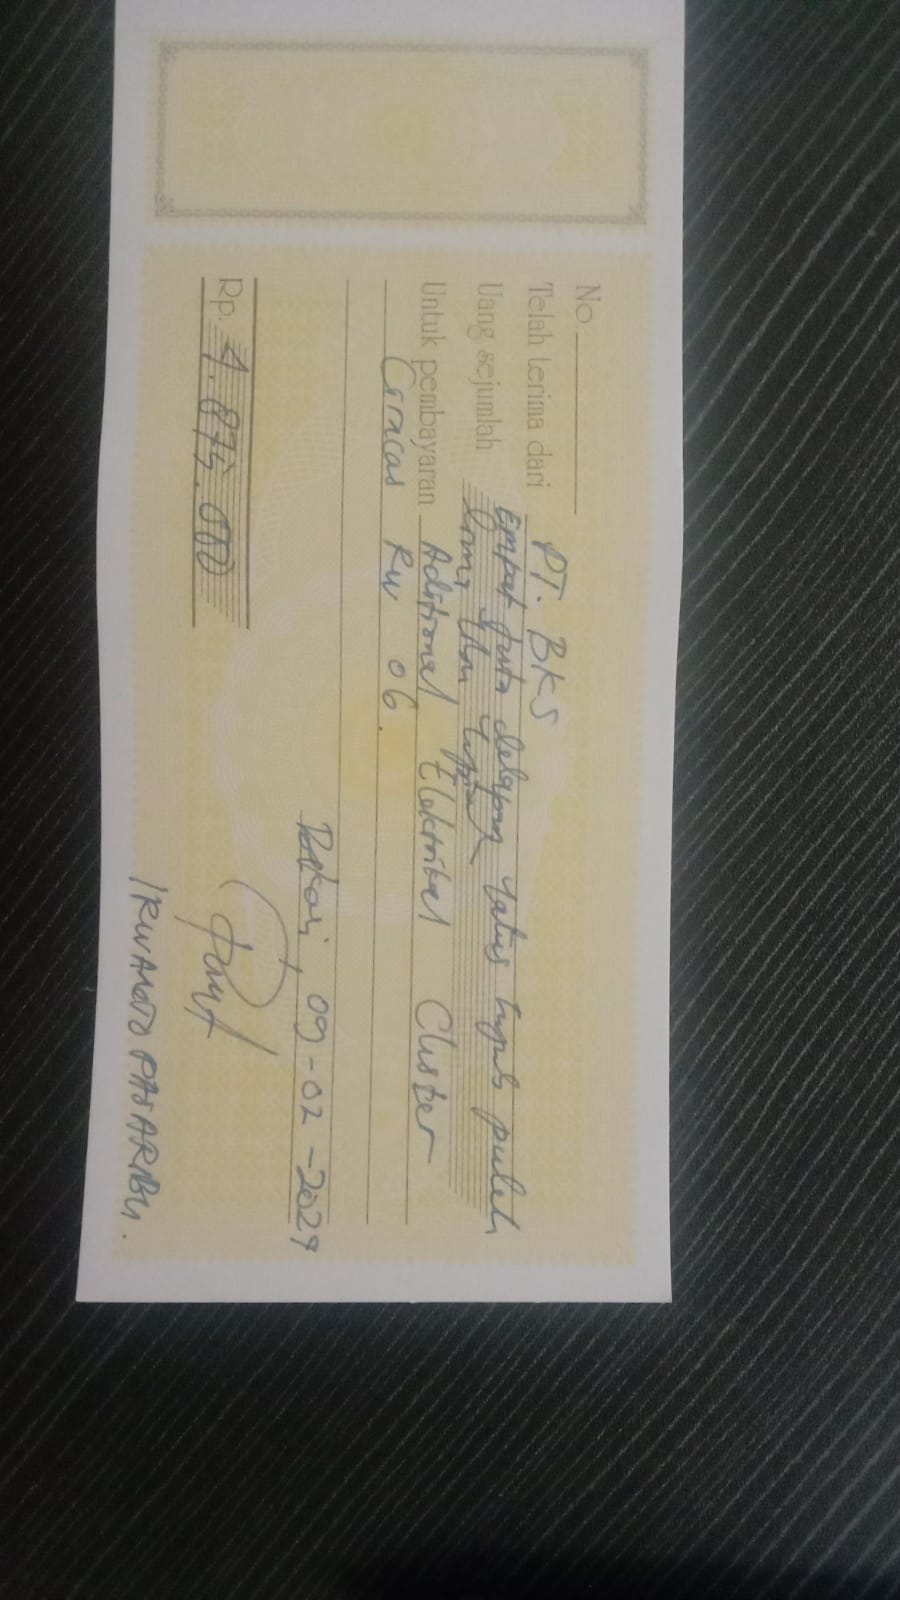 No.
Telah terima dari PT. BKS
Uang sejumlah Empat Juta delapan ratus tujuh puluh
Lima Ribu rupiah
Untuk pembayaran Aditional Elektrikal Cluster
Ciracas RW 06.
Bekasi, 09-02-2024
Rp. 4.875.000
IRWANTO PASARIBU.